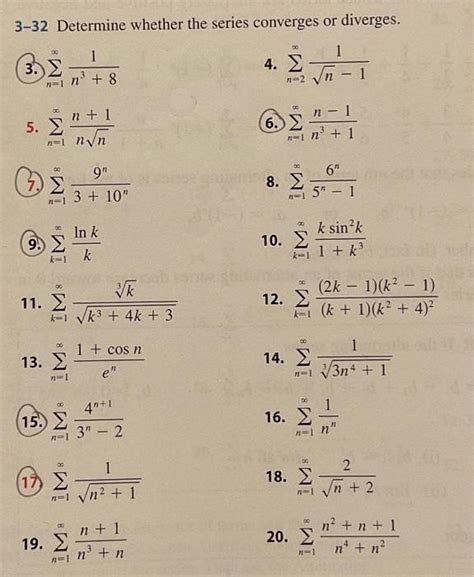 3–32 Determine whether the series converges or diverges.
3. ∑_{n=1}^{∞} 1/(n³ + 8)
4. ∑_{n=2}^{∞} 1/(√n − 1)
5. ∑_{n=1}^{∞} (n + 1)/(n√n)
6. ∑_{n=1}^{∞} (n − 1)/(n³ + 1)
7. ∑_{n=1}^{∞} 9ⁿ/(3 + 10ⁿ)
8. ∑_{n=1}^{∞} 6ⁿ/(5ⁿ − 1)
9. ∑_{k=1}^{∞} (ln k)/k
10. ∑_{k=1}^{∞} (k sin²k)/(1 + k³)
11. ∑_{k=1}^{∞} ∛k/√(k³ + 4k + 3)
12. ∑_{k=1}^{∞} (2k − 1)(k² − 1)/((k + 1)(k² + 4)²)
13. ∑_{n=1}^{∞} (1 + cos n)/eⁿ
14. ∑_{n=1}^{∞} 1/∛(3n⁴ + 1)
15. ∑_{n=1}^{∞} 4ⁿ⁺¹/(3ⁿ − 2)
16. ∑_{n=1}^{∞} 1/nⁿ
17. ∑_{n=1}^{∞} 1/√(n² + 1)
18. ∑_{n=1}^{∞} 2/(√n + 2)
19. ∑_{n=1}^{∞} (n + 1)/(n³ + n)
20. ∑_{n=1}^{∞} (n² + n + 1)/(n⁴ + n²)